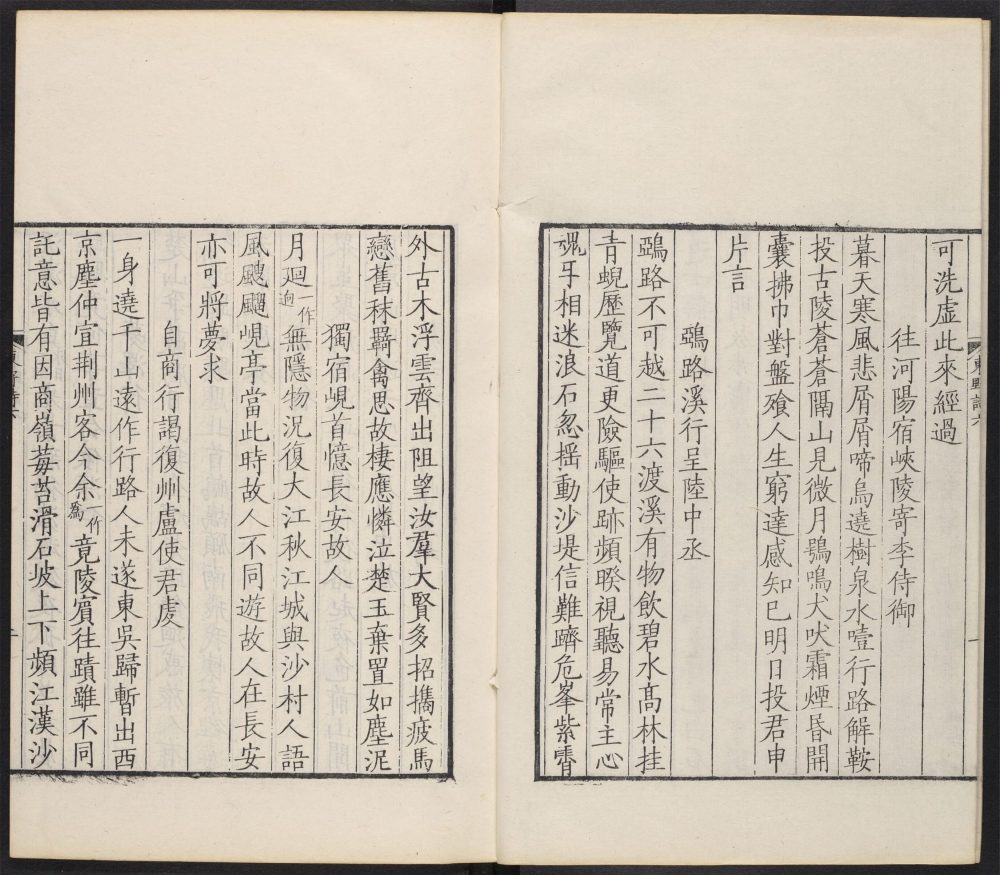 可洗虛此來經過
往河陽宿峽陵寄李侍御
暮天寒風悲屑屑啼烏遶樹泉水噎行路解鞍
投古陵蒼蒼隔山見微月鴞鳴犬吠霜煙昏開
囊拂巾對盤飱人生窮達感知已明日投君申
片言
鵶路溪行呈陸中丞
鵶路不可越二十六渡溪有物飲碧水高林挂
青蜺歷覽道更險驅使跡頻暌視聽易常主心
魂㸦相迷浪石忽揺動沙堤信難躋危峯紫霄
東野詩六
一
外古木浮雲齊出阻望汝羣大賢多招攜疲馬
戀舊秣羇禽思故棲應憐泣楚玉棄置如塵泥
獨宿峴首憶長安故人
月廻一作逈無隱物況復大江秋江城與沙村人語
風飋飋峴亭當此時故人不同遊故人在長安
亦可將夢求
自商行謁復州盧使君虔
一身遶千山遠作行路人未遂東吳歸暫出西
京塵仲宣荆州客今余一作爲竟陵賓往蹟雖不同
託意皆有因商嶺莓苔滑石坡上下頻江漢沙